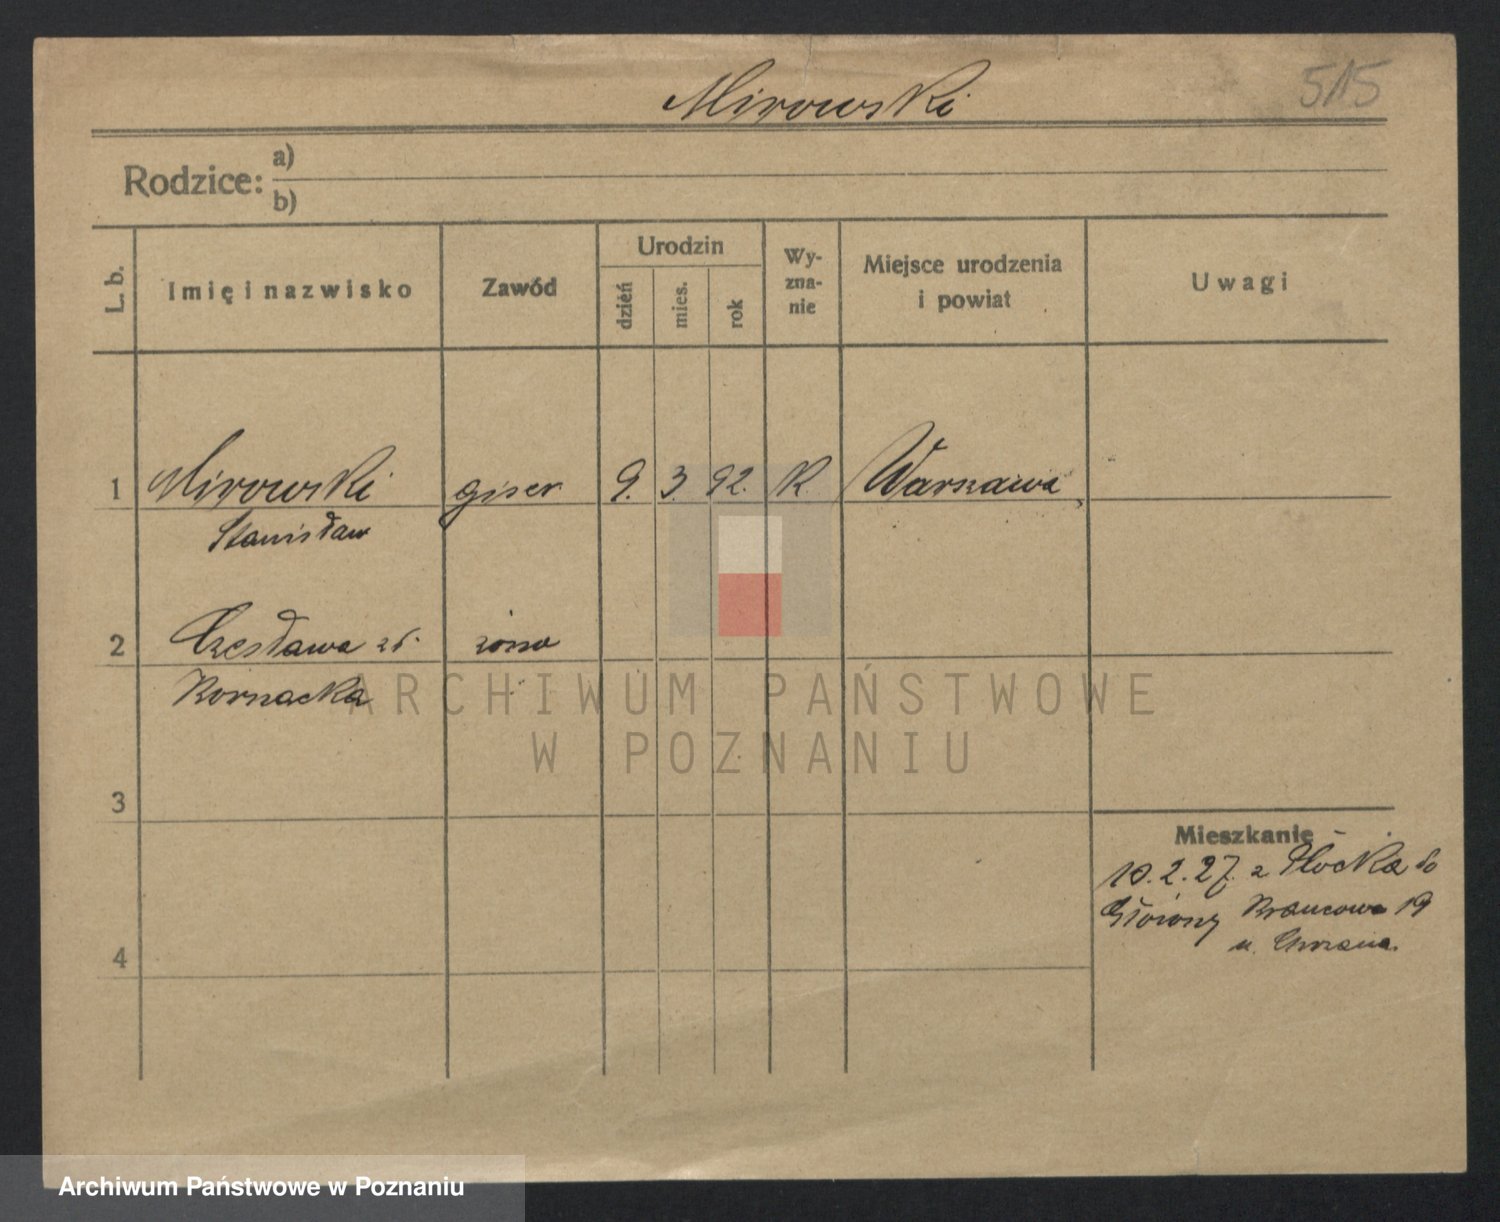 Mirowski
515
Rodzice: a)
b)
L. b.
Imię i nazwisko
Zawód
Urodzin
dzień
mies.
rok
Wy-
zna-
nie
Miejsce urodzenia
i powiat
Uwagi
1 Mirowski giser 9. 3. 92. K. Warszawa
Stanisław
2 Czesława zd. żona
Kornacka
ARCHIWUM PAŃSTWOWE
W POZNANIU
3
Mieszkanie
10.2.27. z Płocka do
Główny 19
u
4
Archiwum Państwowe w Poznaniu